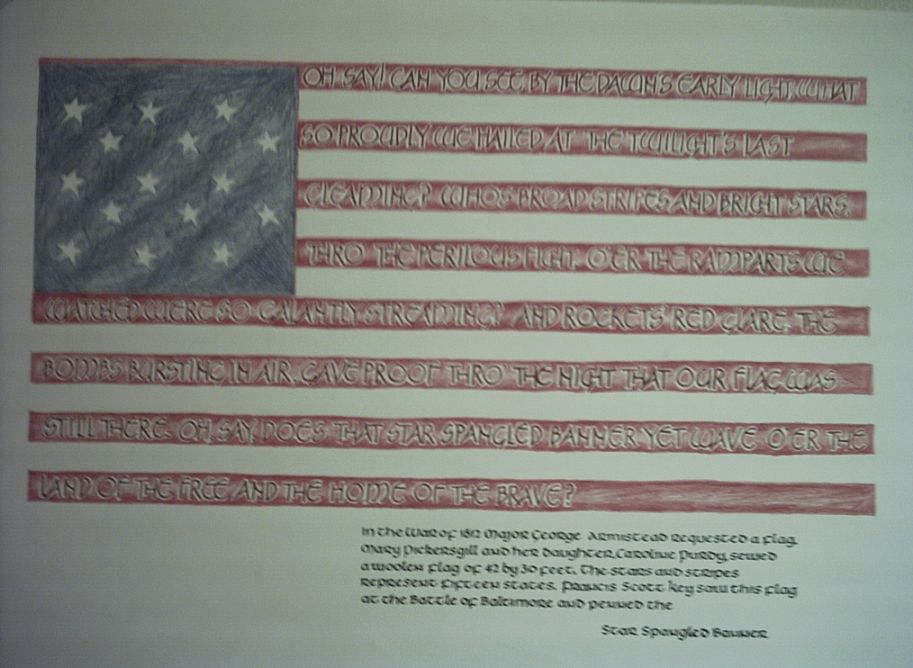 OH, SAY! CAN YOU SEE, BY THE DAWN'S EARLY LIGHT, WHAT
SO PROUDLY WE HAILED AT THE TWILIGHT'S LAST
GLEAMING? WHOS BROAD STRIPES AND BRIGHT STARS,
THRO THE PERILOUS FIGHT, O'ER THE RAMPARTS WE
WATCHED WERE SO GALANTLY STREAMING? AND ROCKETS' RED GLARE, THE
BOMBS BURSTING IN AIR, GAVE PROOF THRO' THE NIGHT THAT OUR FLAG WAS
STILL THERE. OH, SAY, DOES THAT STAR SPANGLED BANNER YET WAVE O'ER THE
LAND OF THE FREE AND THE HOME OF THE BRAVE?
In the War of 1812 Major George Armistead requested a flag.
Mary Pickersgill and her daughter, Caroline Purdy, sewed
a woolen flag of 42 by 30 feet. The stars and stripes
represent fifteen states. Francis Scott Key saw this flag
at the Battle of Baltimore and penned the
Star Spangled Banner